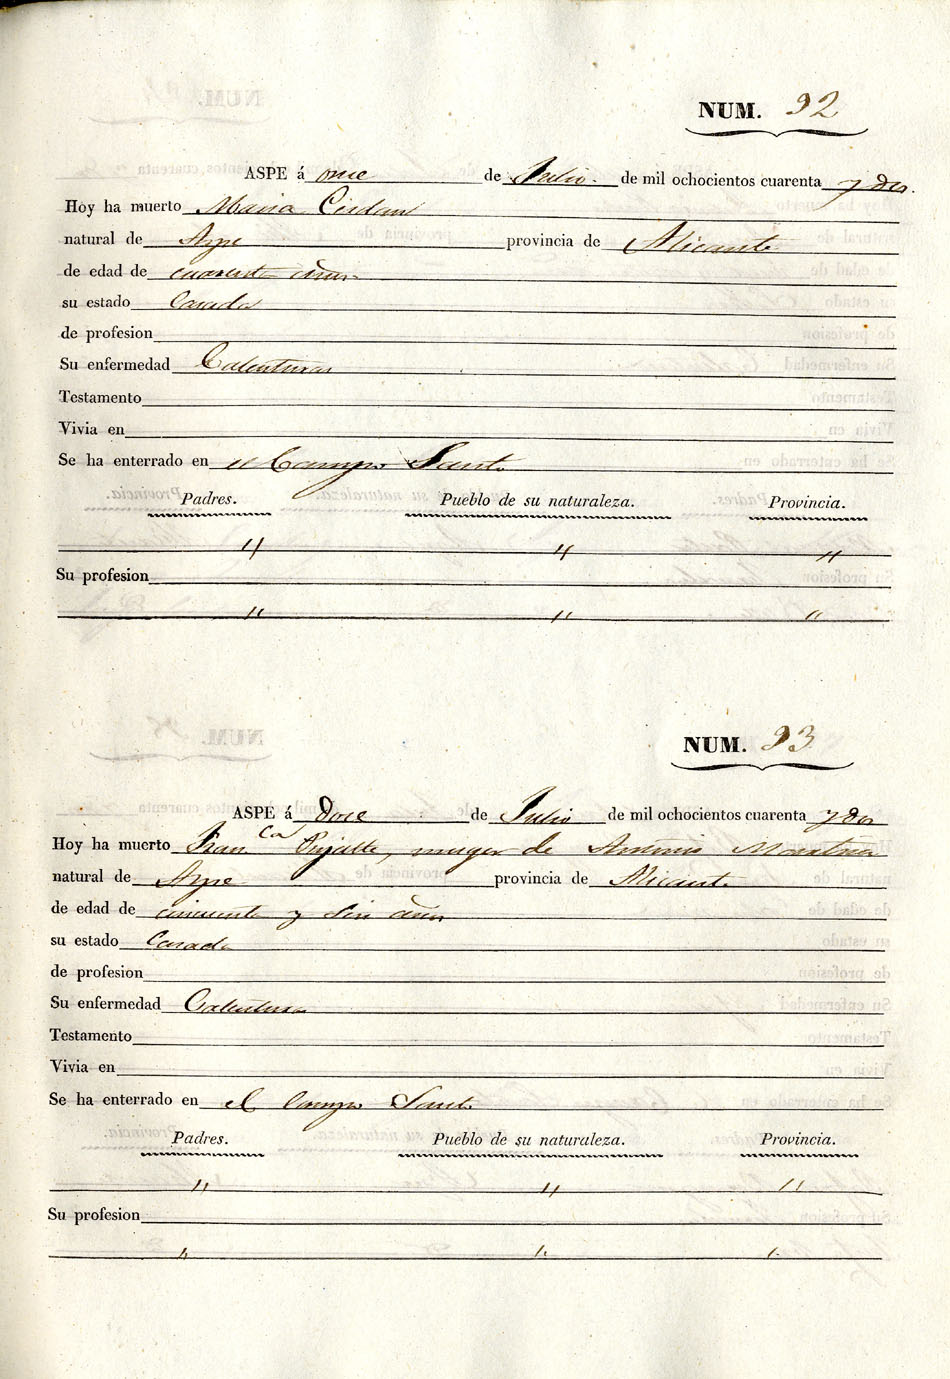 NUM. 92
ASPE á once de Julio de mil ochocientos cuarenta y dos.
Hoy ha muerto Maria Cerdan
natural de Aspe provincia de Alicante
de edad de cuarenta años
su estado Casada
de profesion
Su enfermedad Calenturas
Testamento
Vivia en
Se ha enterrado en el Campo Santo
Padres. Pueblo de su naturaleza. Provincia.
" " "
Su profesion
" " "
NUM. 93
ASPE á doce de Julio de mil ochocientos cuarenta y dos
Hoy ha muerto Fran.ca Pujalte, muger de Antonio Martinez
natural de Aspe provincia de Alicante
de edad de cincuenta y seis años
su estado Casada
de profesion
Su enfermedad Calenturas
Testamento
Vivia en
Se ha enterrado en el Campo Santo
Padres. Pueblo de su naturaleza. Provincia.
" " "
Su profesion
" " "